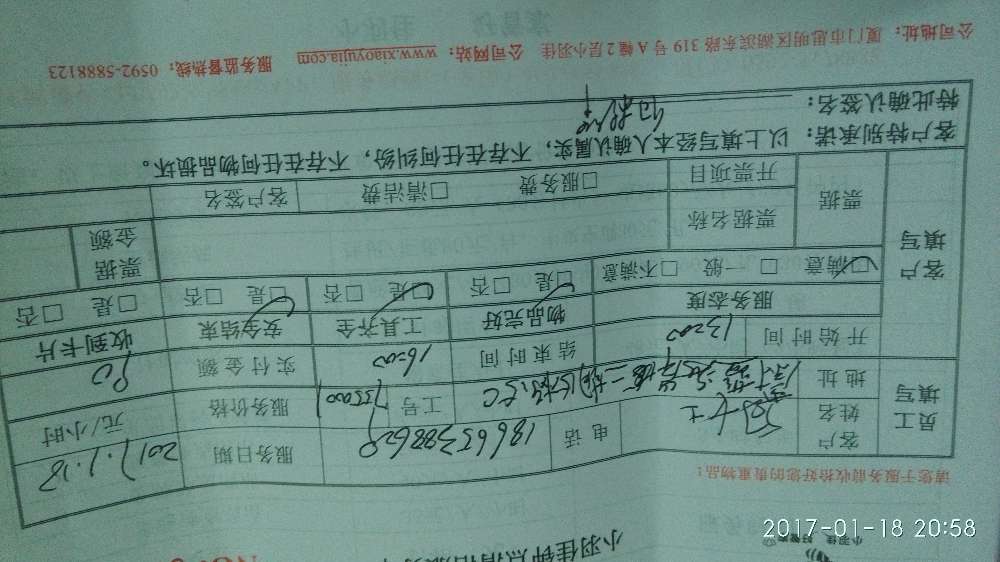 小羽佳钟点清洁服务
请您于服务前收拾好您的贵重物品!
员工填写 客户姓名 女士 电话 服务日期 2017.1.18
地址 工号 服务价格 元/小时
开始时间 13:00 结束时间 16:00 实付金额 90
客户填写 服务态度 物品完好 工具齐全 安全结束 收到卡片
□满意 □一般 □不满意 □是 □否 □是 □否 □是 □否 □是 □否
票据 票据名称 票据金额
开票项目 □服务费 □清洁费 客户签名
客户特别承诺:以上填写经本人确认属实,不存在任何纠纷,不存在任何物品损坏。
特此确认签名:
公司地址:厦门市思明区湖滨东路 319 号 A 幢 2 层小羽佳 公司网站:www.xiaoyujia.com 服务监督热线:0592-5888123
2017-01-18 20:58